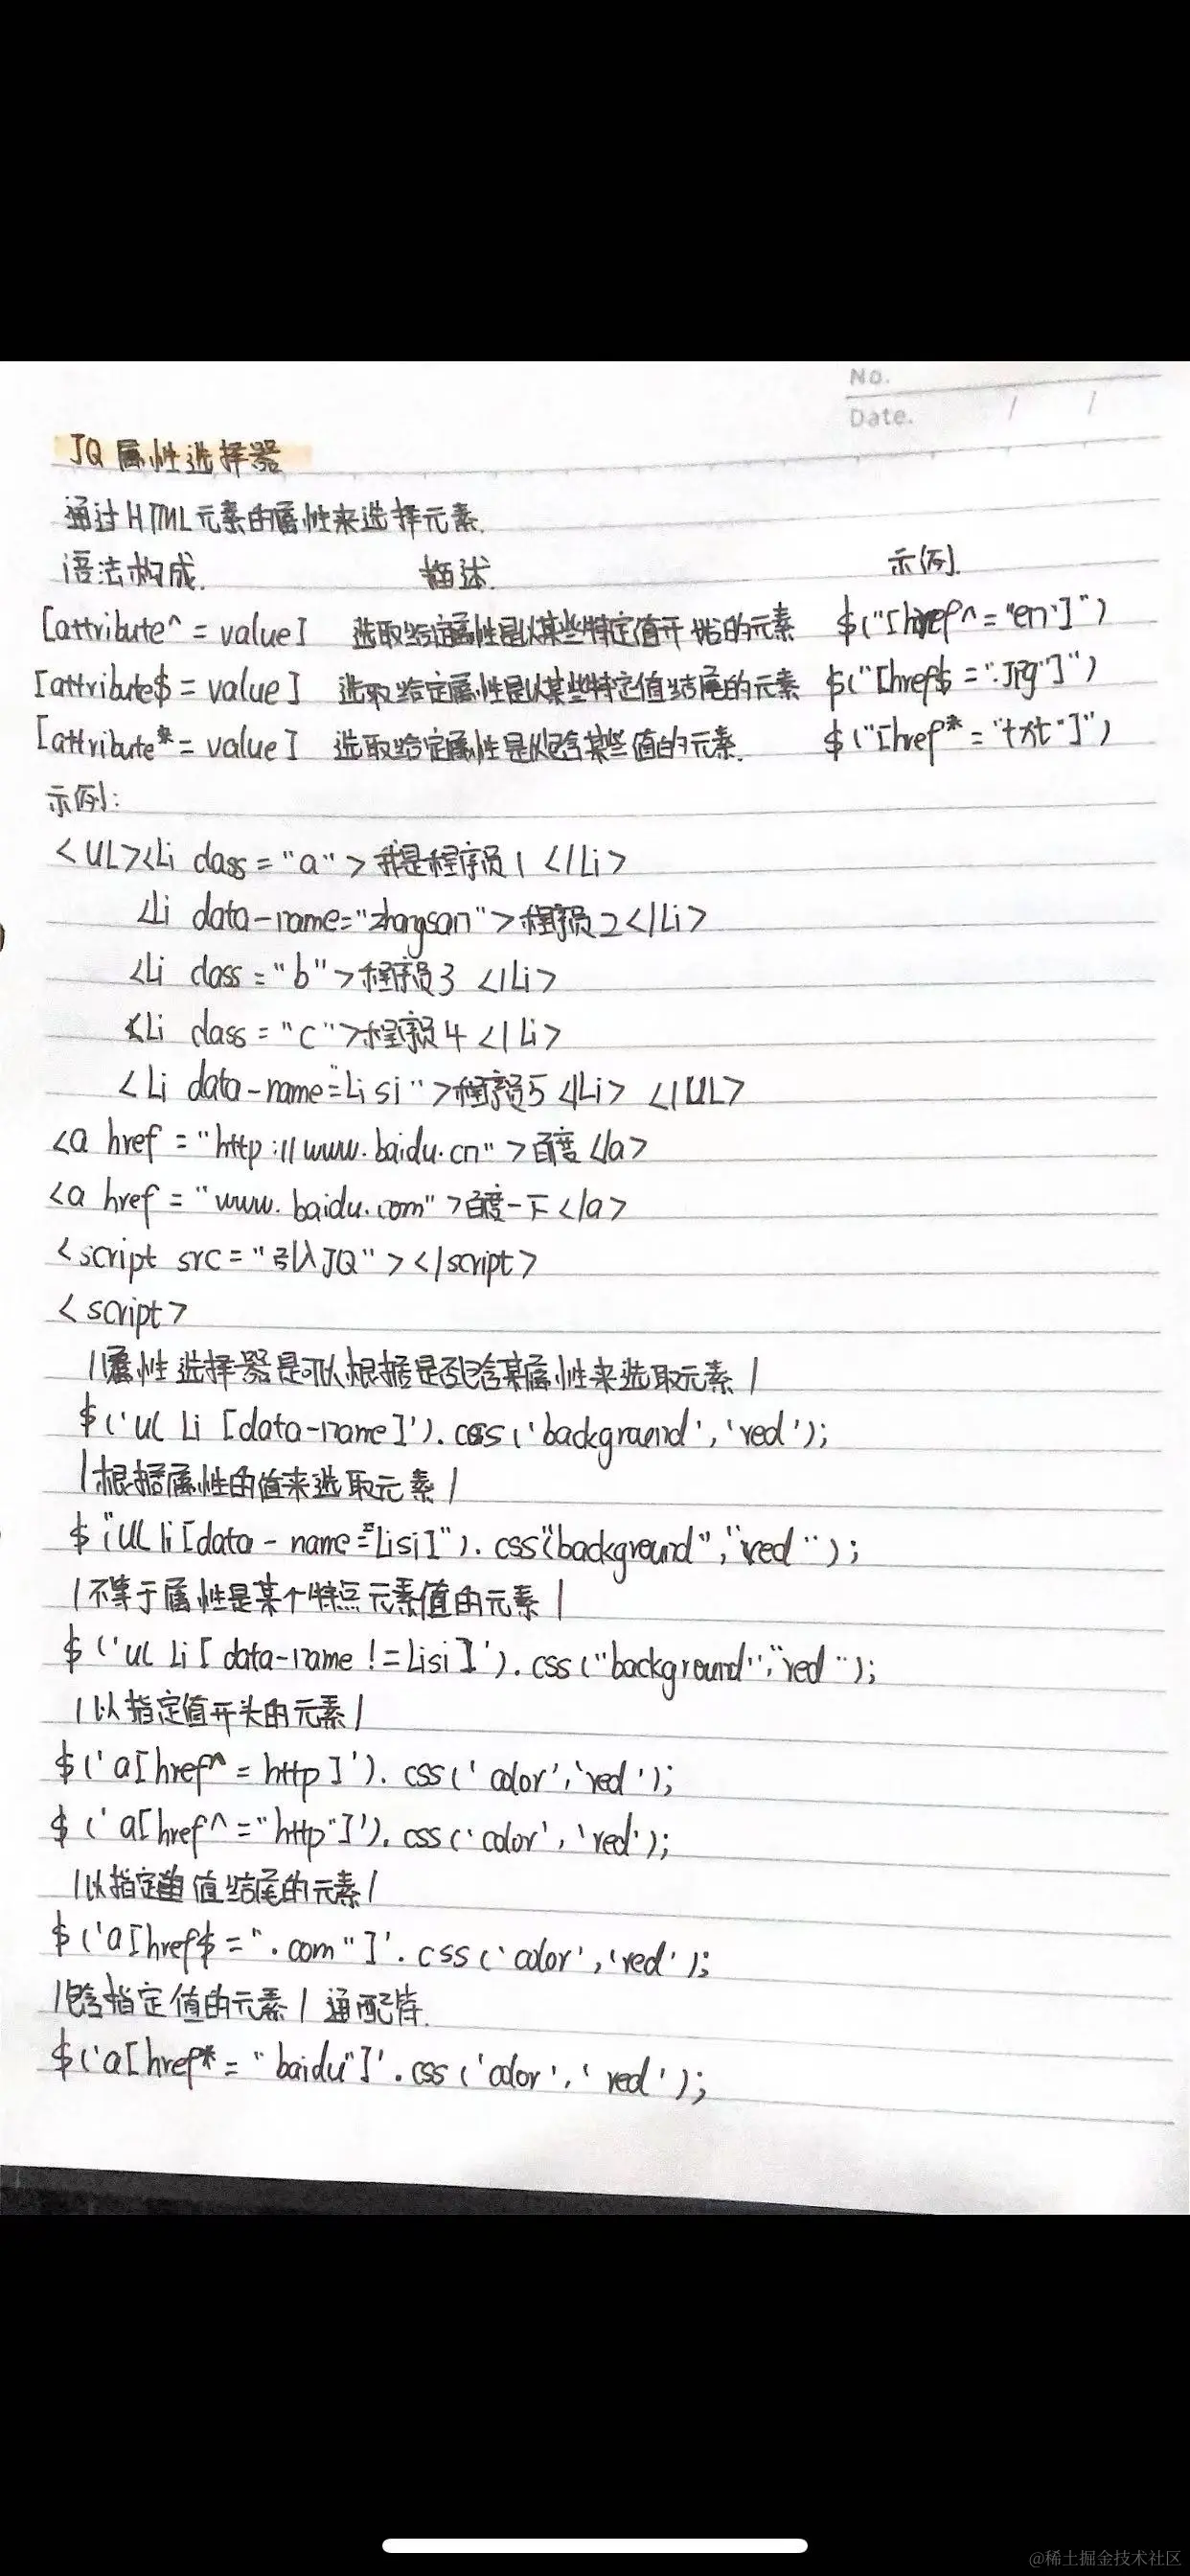 No.
Date. / /
JQ 属性选择器
通过HTML元素的属性来选择元素.
语法构成. 描述. 示例.
[attribute^ = value] 选取给定属性是以某些特定值开始的元素 $("[href^ = "en"]")
[attribute$ = value] 选取给定属性是以某些特定值结尾的元素 $("[href$ = ".Jpg"]")
[attribute* = value] 选取给定属性是以包含某些值的元素. $("[href* = "txt"]")
示例:
<UL><Li class = "a" > 我是程序员1 </Li>
<Li data-name="zhangsan">程序员2</Li>
<Li class = "b">程序员3 </Li>
<Li class = "c">程序员4 </Li>
<Li data-name="Lisi">程序员5 </Li> </UL>
<a href = "http://www.baidu.cn" >百度</a>
<a href = "www.baidu.com" >百度一下</a>
<script src = "引入JQ" ></script>
<script>
//属性选择器是可以根据是否包含某属性来选取元素/
$('ul Li [data-name]').css('background','red');
/根据属性的值来选取元素/
$("UL li[data-name="Lisi]").css("background","red");
/不等于属性是某个特点元素值的元素/
$('ul Li [data-name !=Lisi]').css("background","red");
/以指定值开头的元素/
$('a[href^ = http]').css('color','red');
$('a[href^ = "http"]').css('color','red');
/以指定的值结尾的元素/
$('a[href$ = ".com"]'.css('color','red');
/包含指定值的元素/ 通配符.
$('a[href* = "baidu"]'.css('color','red');
@稀土掘金技术社区